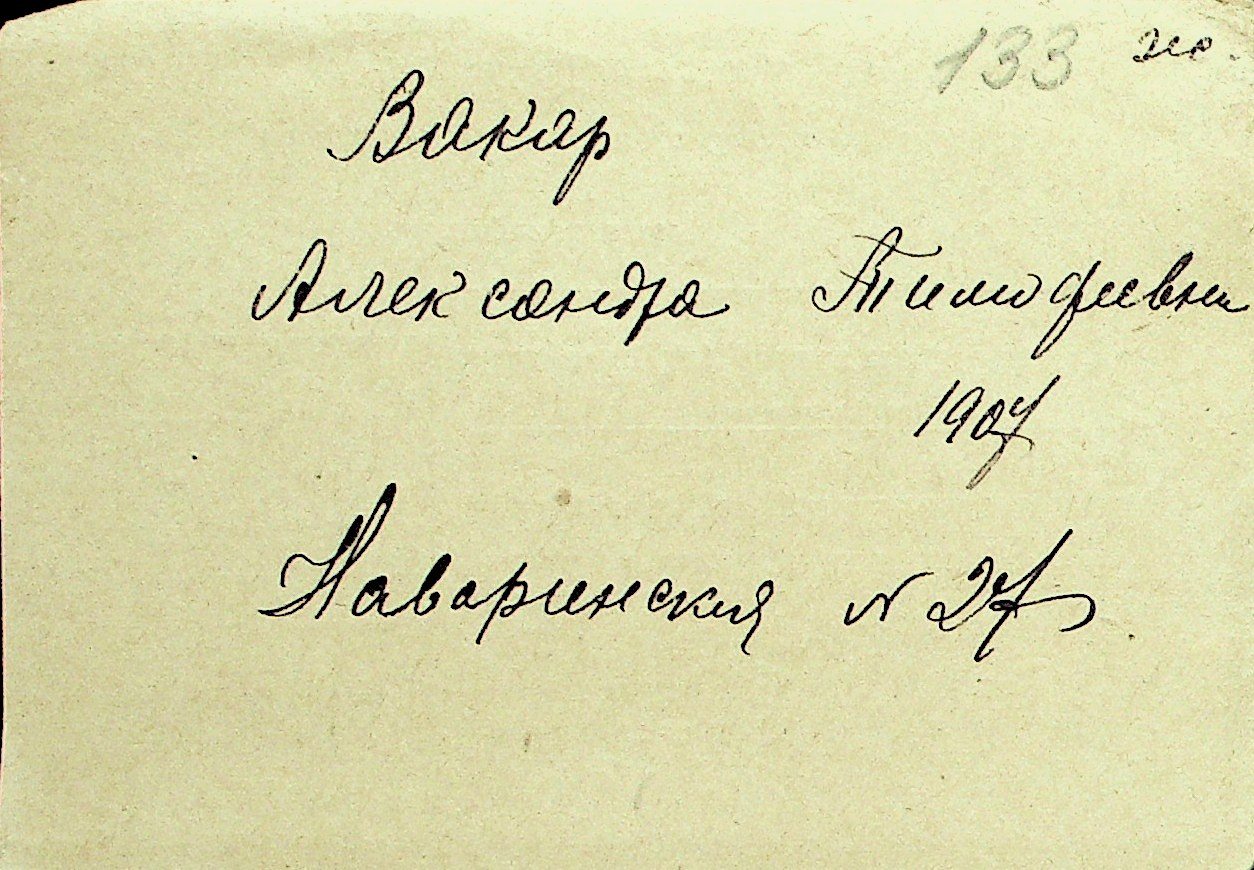 133 эю.
Вакар
Александра Тимофеевна
1907
Наваринская № 27